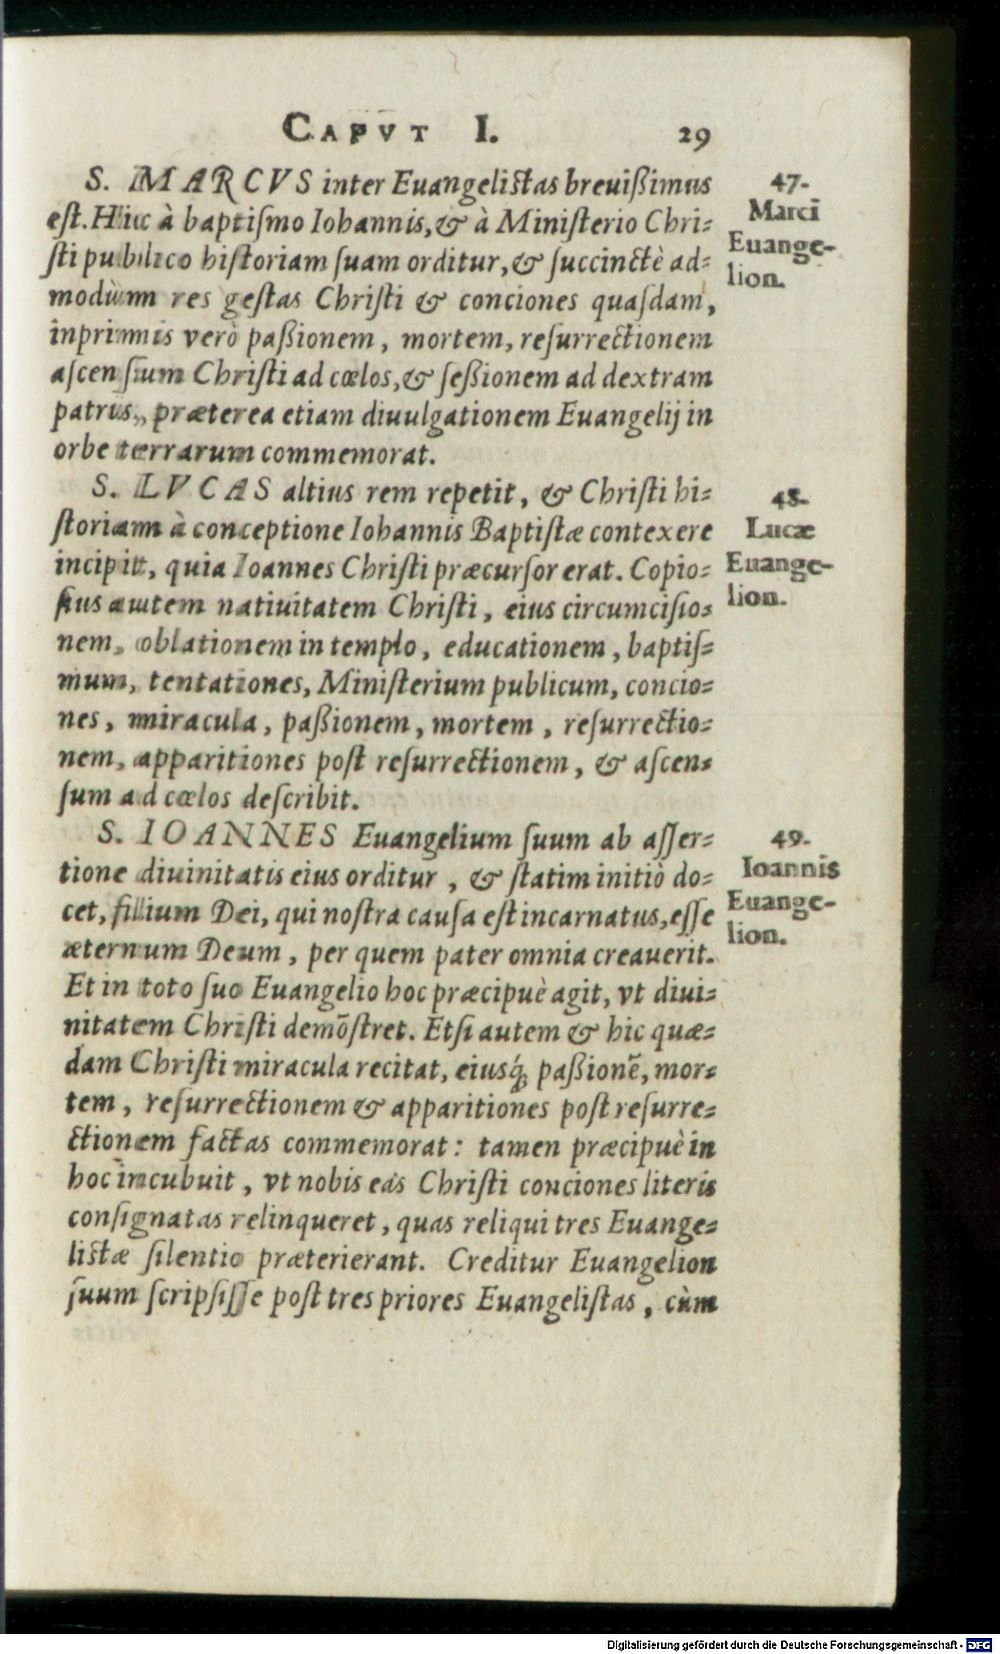 CAPVT I. 29
S. MARCVS inter Euangelistas breuißimus
est. Hic à baptiſmo Iohannis, & à Miniſterio Chri-
ſti publico hiſtoriam ſuam orditur, & ſuccinctè ad-
modùm res geſtas Chriſti & conciones quaſdam,
inprimis verò paßionem, mortem, reſurrectionem
aſcenſum Chriſti ad cœlos, & ſeßionem ad dextram
patris, præterea etiam diuulgationem Euangelij in
orbe terrarum commemorat.
47.
Marci
Euange-
lion.
S. LVCAS altius rem repetit, & Chriſti hi-
ſtoriam à conceptione Iohannis Baptiſtæ contexere
incipit, quia Ioannes Chriſti præcurſor erat. Copio-
ſius autem natiuitatem Chriſti, eius circumciſio-
nem, oblationem in templo, educationem, baptiſ-
mum, tentationes, Miniſterium publicum, concio-
nes, miracula, paßionem, mortem, reſurrectio-
nem, apparitiones poſt reſurrectionem, & aſcen-
ſum ad cœlos deſcribit.
48.
Lucæ
Euange-
lion.
S. IOANNES Euangelium ſuum ab aſſer-
tione diuinitatis eius orditur, & ſtatim initiò do-
cet, filium Dei, qui noſtra cauſa eſt incarnatus, eſſe
æternum Deum, per quem pater omnia creauerit.
Et in toto ſuo Euangelio hoc præcipuè agit, vt diui-
nitatem Chriſti demõſtret. Etſi autem & hic quæ-
dam Chriſti miracula recitat, eiusq́; paßionẽ, mor-
tem, reſurrectionem & apparitiones poſt reſurre-
ctionem factas commemorat: tamen præcipuè in
hoc incubuit, vt nobis eas Chriſti conciones literis
conſignatas relinqueret, quas reliqui tres Euange-
listæ ſilentio præterierant. Creditur Euangelion
ſuum ſcripſiſſe poſt tres priores Euangeliſtas, cùm
49.
Ioannis
Euange-
lion.
Digitalisierung gefördert durch die Deutsche Forschungsgemeinschaft - DFG